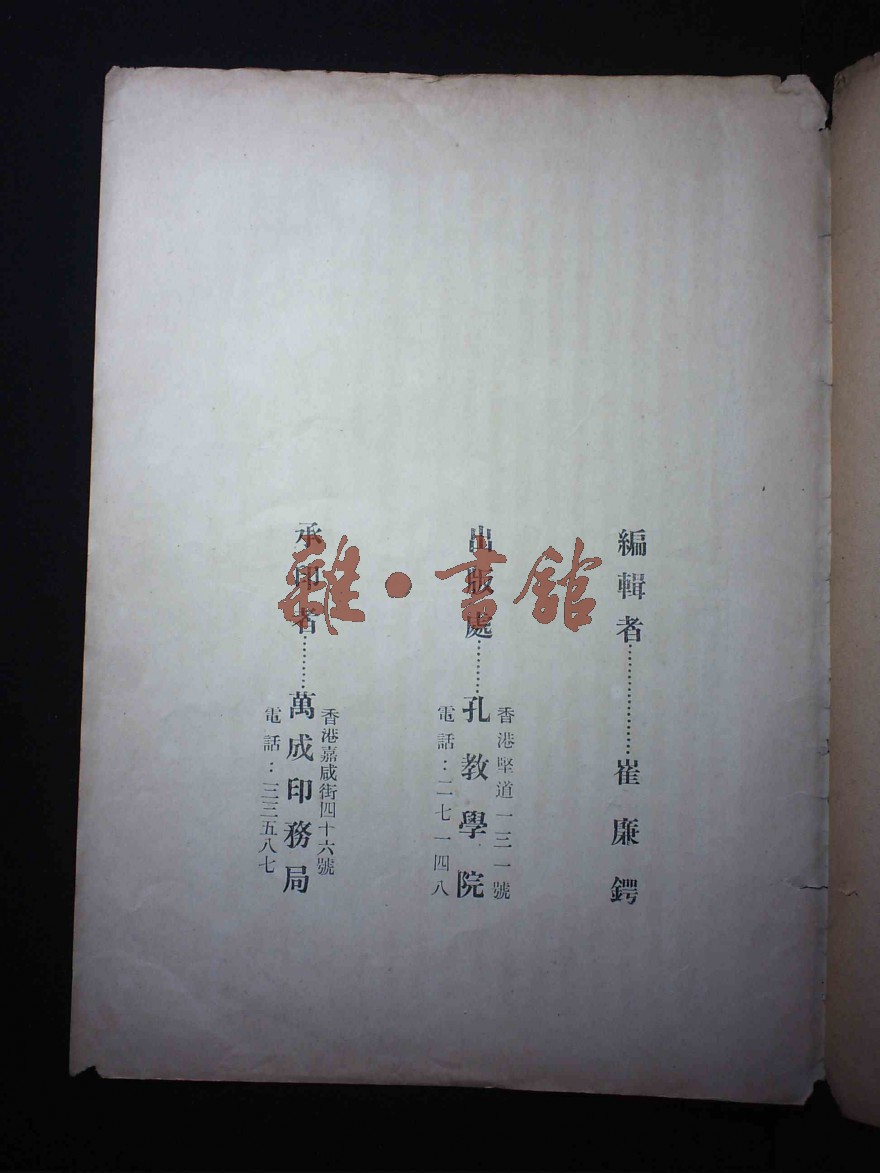 編輯者………………崔廉鍔
出版處………孔教學院
香港堅道一三一號
電話：二七一四八
承印者………萬成印務局
香港嘉咸街四十六號
電話：三三五八七
雜·書館